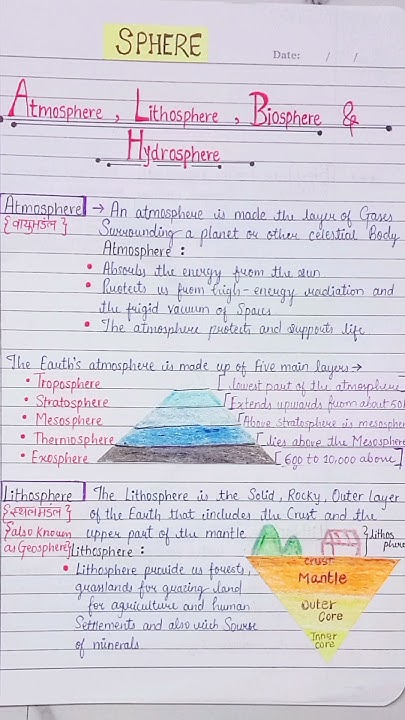 SPHERE
Date: / /
Atmosphere, Lithosphere, Biosphere &
Hydrosphere
Atmosphere → An atmosphere is made the layer of Gases
{वायुमंडल} Surrounding a planet or other celestial Body
Atmosphere :
• Absorbs the energy from the sun
• Protects us from high-energy radiation and
the frigid vacuum of Spaces
• The atmosphere protects and supports life
The Earth's atmosphere is made up of Five main layers →
• Troposphere [lowest part of the atmosphere]
• Stratosphere [Extends upwards from about 50
• Mesosphere [Above Stratosphere is mesospher
• Thermosphere [lies above the Mesosphere
• Exosphere [600 to 10,000 above]
Lithosphere The Lithosphere is the Solid, Rocky, Outer layer
{स्थलमंडल} of the Earth that includes the Crust and the
{also known upper part of the mantle
as Geosphere} Lithosphere :
} Lithos
phere
• Lithosphere provide us forests,
grasslands for grazing land
for agriculture and human
Settlements and also rich Sourse
of minerals
Crust
Mantle
Outer
Core
Inner
core